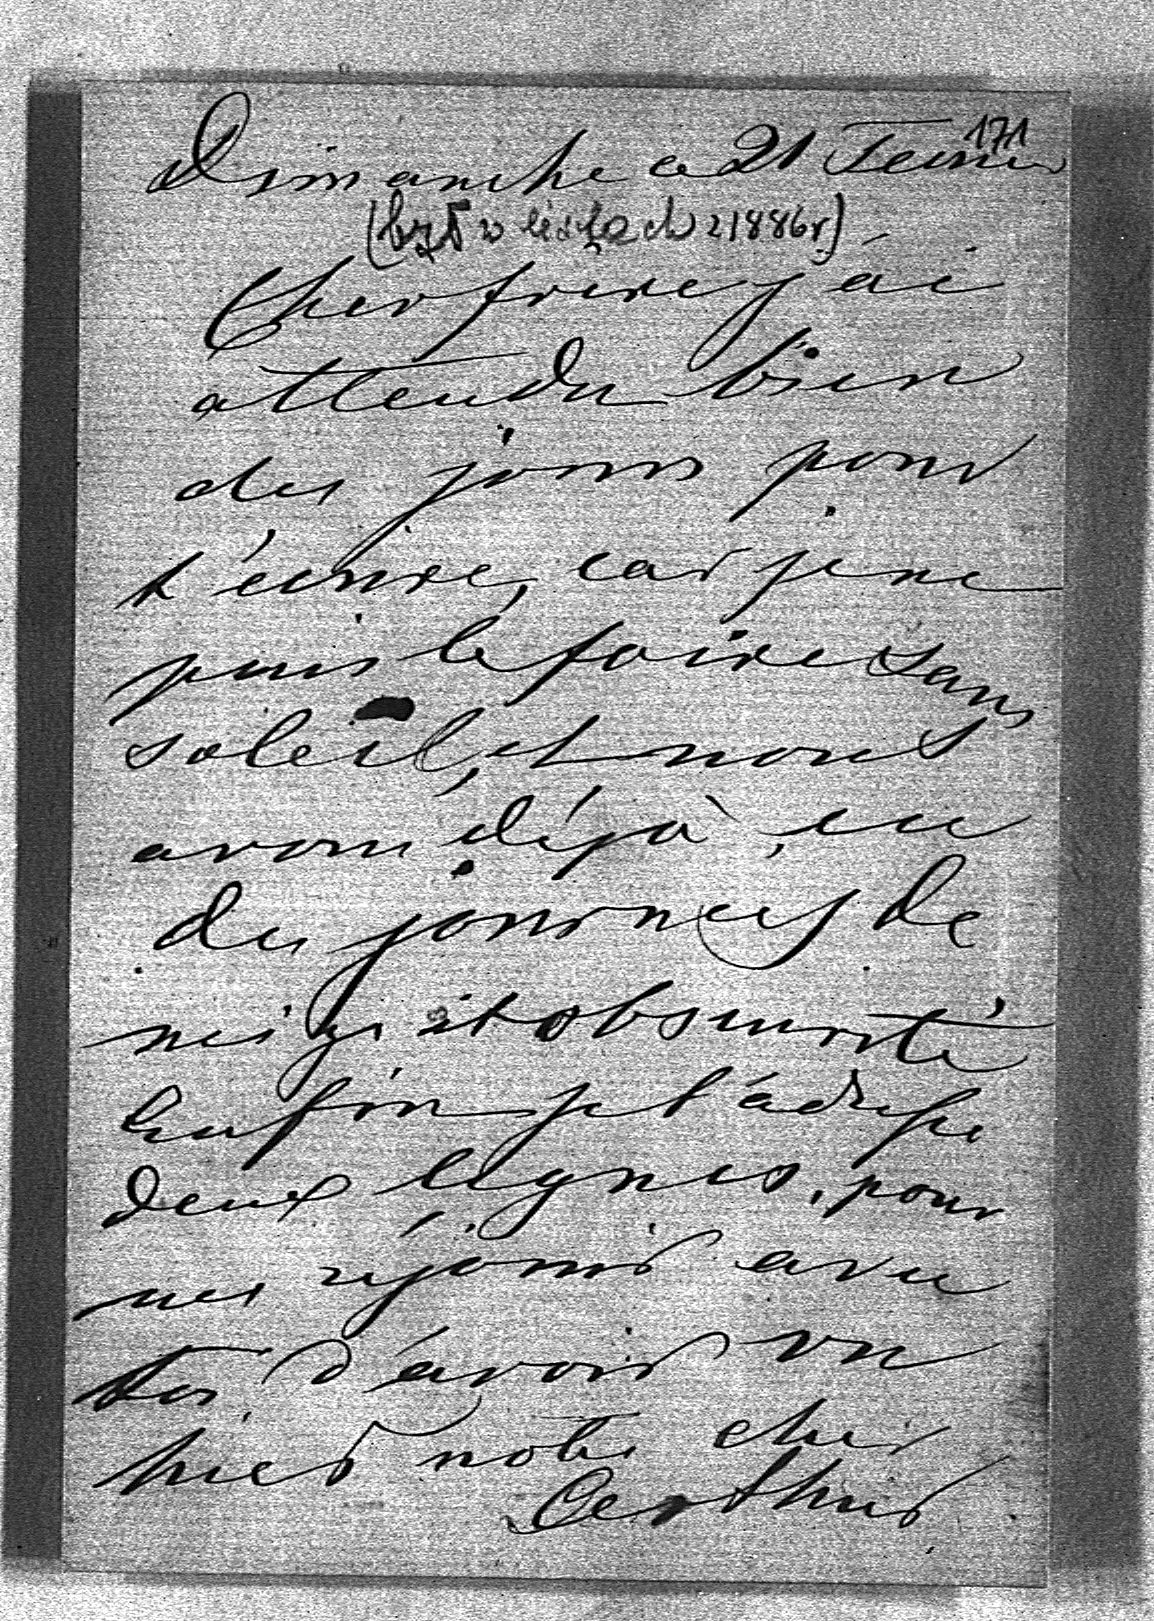 171
Dimanche ce 21 Fevrier
(był w listach z 1886 r)
Cher frere j'ai
attendu bien
des jours pour
t'ecrire, car je ne
puis le faire sans
soleil, et nous
avons déjà eu
des journees de
neige et obscurité
Enfin je t'adresse
deux lignes, pour
me rejouir avec
toi, d'avoir vu
hier notre cher
Arthur